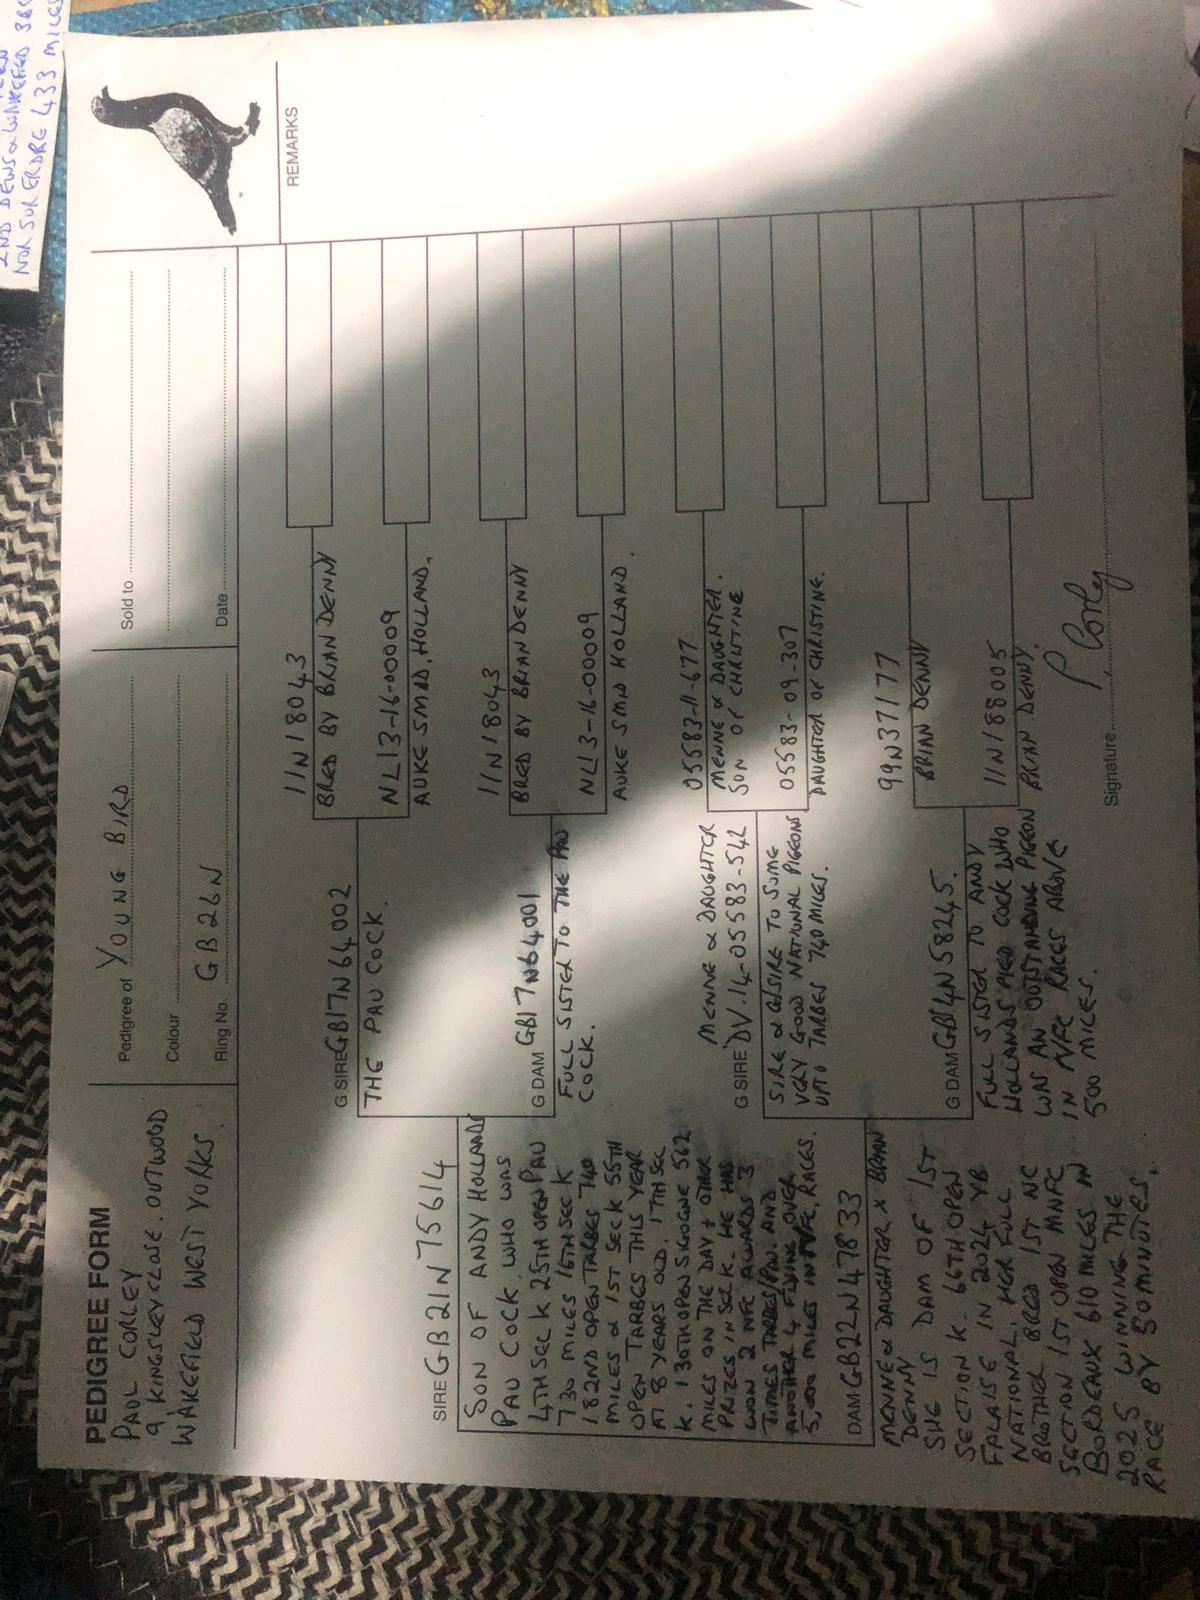 2ND DEWS & WAKEFIELD SBC
NOR SUR ERDRE 433 MILES
PEDIGREE FORM
PAUL CORLEY
9 KINGSLEY CLOSE. OUTWOOD
WAKEFIELD WEST YORKS.
Pedigree of YOUNG BIRD
Colour
Ring No. GB26N
Sold to
Date
REMARKS
SIRE GB21N75614
SON OF ANDY HOLLANDS
PAU COCK. WHO WAS
4TH SEC K 25TH OPEN PAU
730 MILES 16TH SEC K
182ND OPEN TARBES 740
MILES & 1ST SEC K 55TH
OPEN TARBES THIS YEAR
AT 8 YEARS OLD. 17TH SEC
K. 130TH OPEN SIGOGNE 562
MILES ON THE DAY + OTHER
PRIZES IN SEC K. HE HAS
WON 2 NFC AWARDS 3
TIMES TARBES/PAU. AND
ANOTHER 4 FLYING OVER
5,000 MILES IN NFC RACES.
DAM GB22N47833
MENNE & DAUGHTER X BRIAN
DENNY
SHE IS DAM OF 1ST
SECTION K. 66TH OPEN
FALAISE IN 2024 YB
NATIONAL. HER FULL
BROTHER BRED 1ST NC
SECTION 1ST OPEN MNFC
BORDEAUX 610 MILES IN
2025 WINNING THE
RACE BY 50 MINUTES.
G SIRE GB17N64002
THE PAU COCK.
G DAM GB17N64001
FULL SISTER TO THE PAU
COCK.
MENNE & DAUGHTER
G SIRE DV.14-05583-542
SIRE & G/SIRE TO SOME
VERY GOOD NATIONAL PIGEONS
UPTO TARBES 740 MILES.
G DAM GB14N58245.
FULL SISTER TO ANDY
HOLLANDS PIED COCK WHO
WAS AN OUTSTANDING PIGEON
IN NFC RACES ABOVE
500 MILES.
11N18043
BRED BY BRIAN DENNY
NL13-16-00009
AUKE SMID, HOLLAND.
11N18043
BRED BY BRIAN DENNY
NL13-16-00009
AUKE SMID HOLLAND.
05583-11-677
MENNE & DAUGHTER.
SON OF CHRISTINE
05583-09-307
DAUGHTER OF CHRISTINE.
99N37177
BRIAN DENNY
11N188005
BRIAN DENNY.
Signature P. Corley